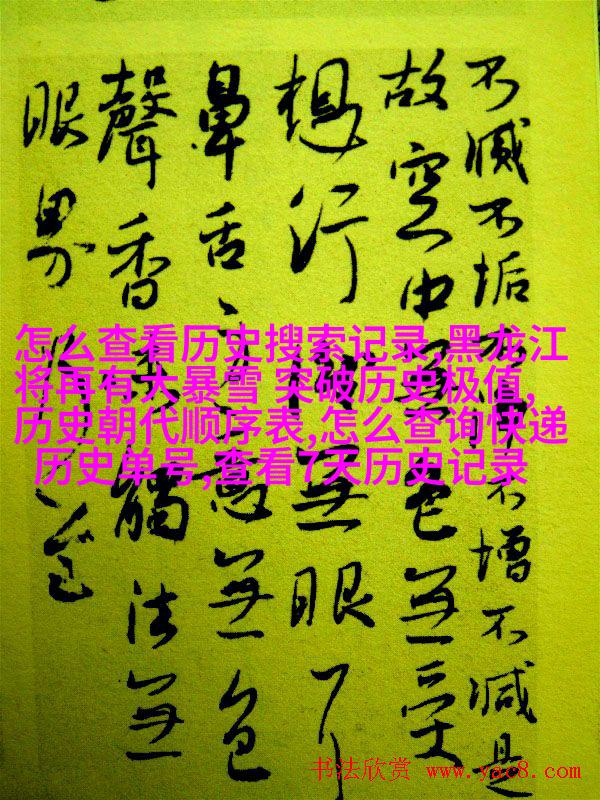 不滅不垢不淨不增不減是
故空中無色無受
想行識無眼耳
鼻舌身意無色
聲香味觸法無
眼界
怎么查看历史搜索记录,黑龙江
将再有大暴雪 突破历史极值,
历史朝代顺序表,怎么查询快递
历史单号,查看7天历史记录
书法欣赏 www.yac8.com